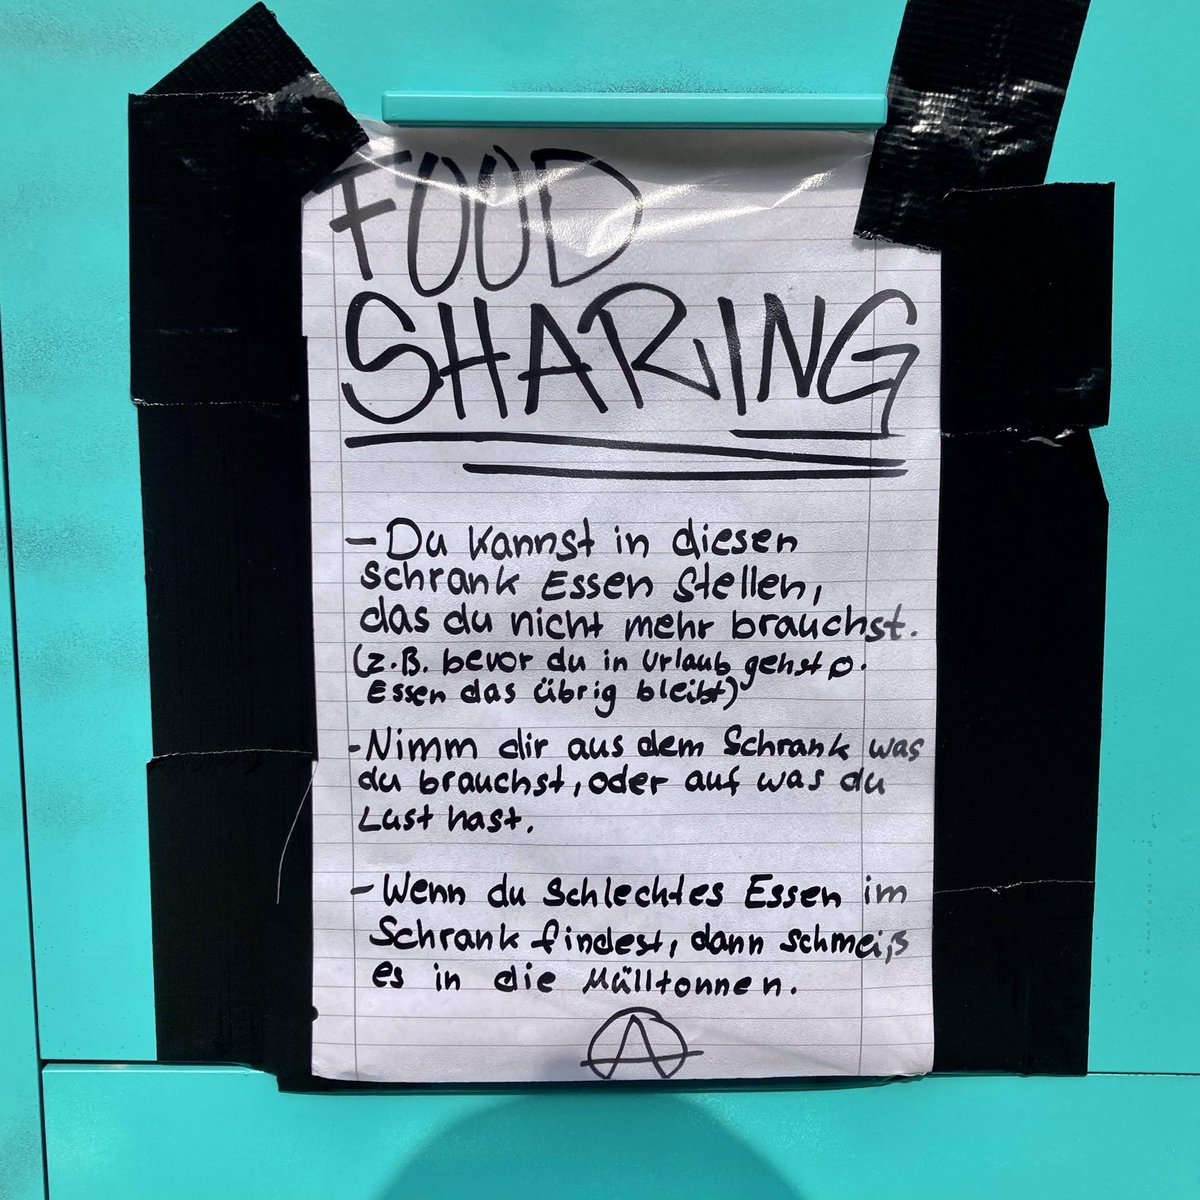 FOOD
SHARING
- Du kannst in diesen
Schrank Essen stellen,
das du nicht mehr brauchst.
(z.B. bevor du in Urlaub gehst o.
Essen das übrig bleibt)
- Nimm dir aus dem Schrank was
du brauchst, oder auf was du
Lust hast.
- Wenn du schlechtes Essen im
Schrank findest, dann schmeiß
es in die Mülltonnen.
A